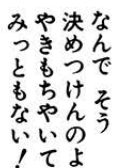 なんで そう
決めつけんのよ
やきもちやいて
みっともない!